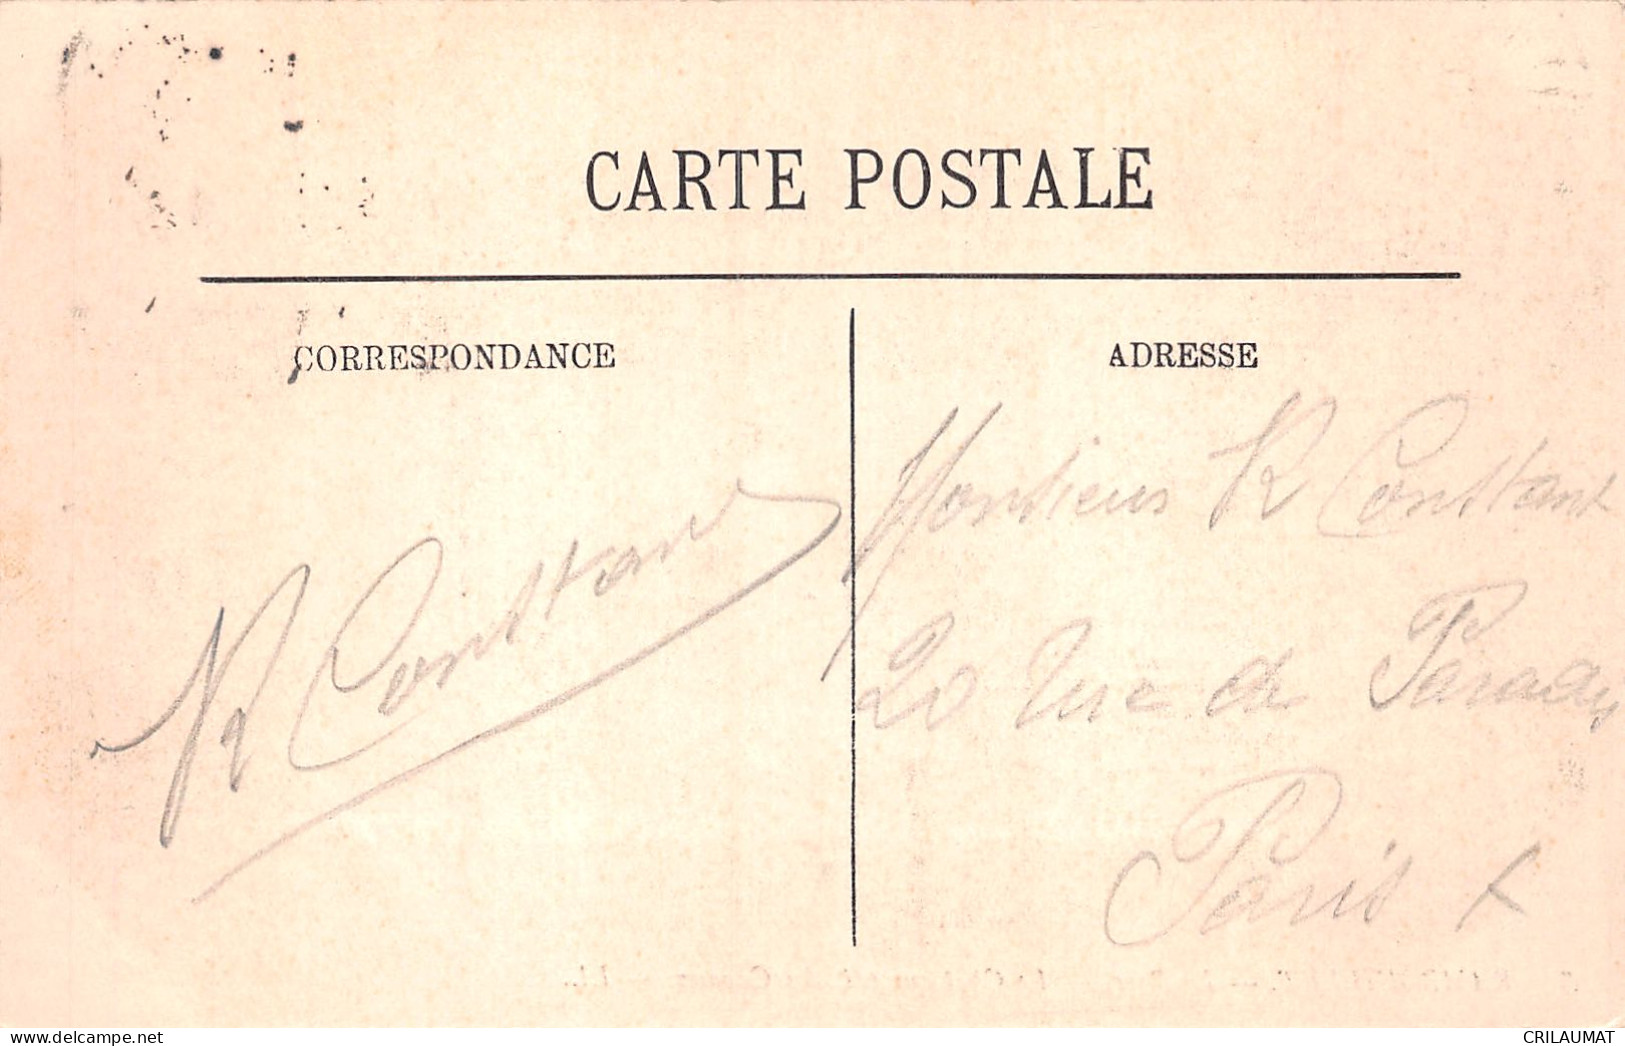 CARTE POSTALE
CORRESPONDANCE
ADRESSE
R Constant
Monsieur R Constant
20 Rue de Paradis
Paris X
CRILAUMAT